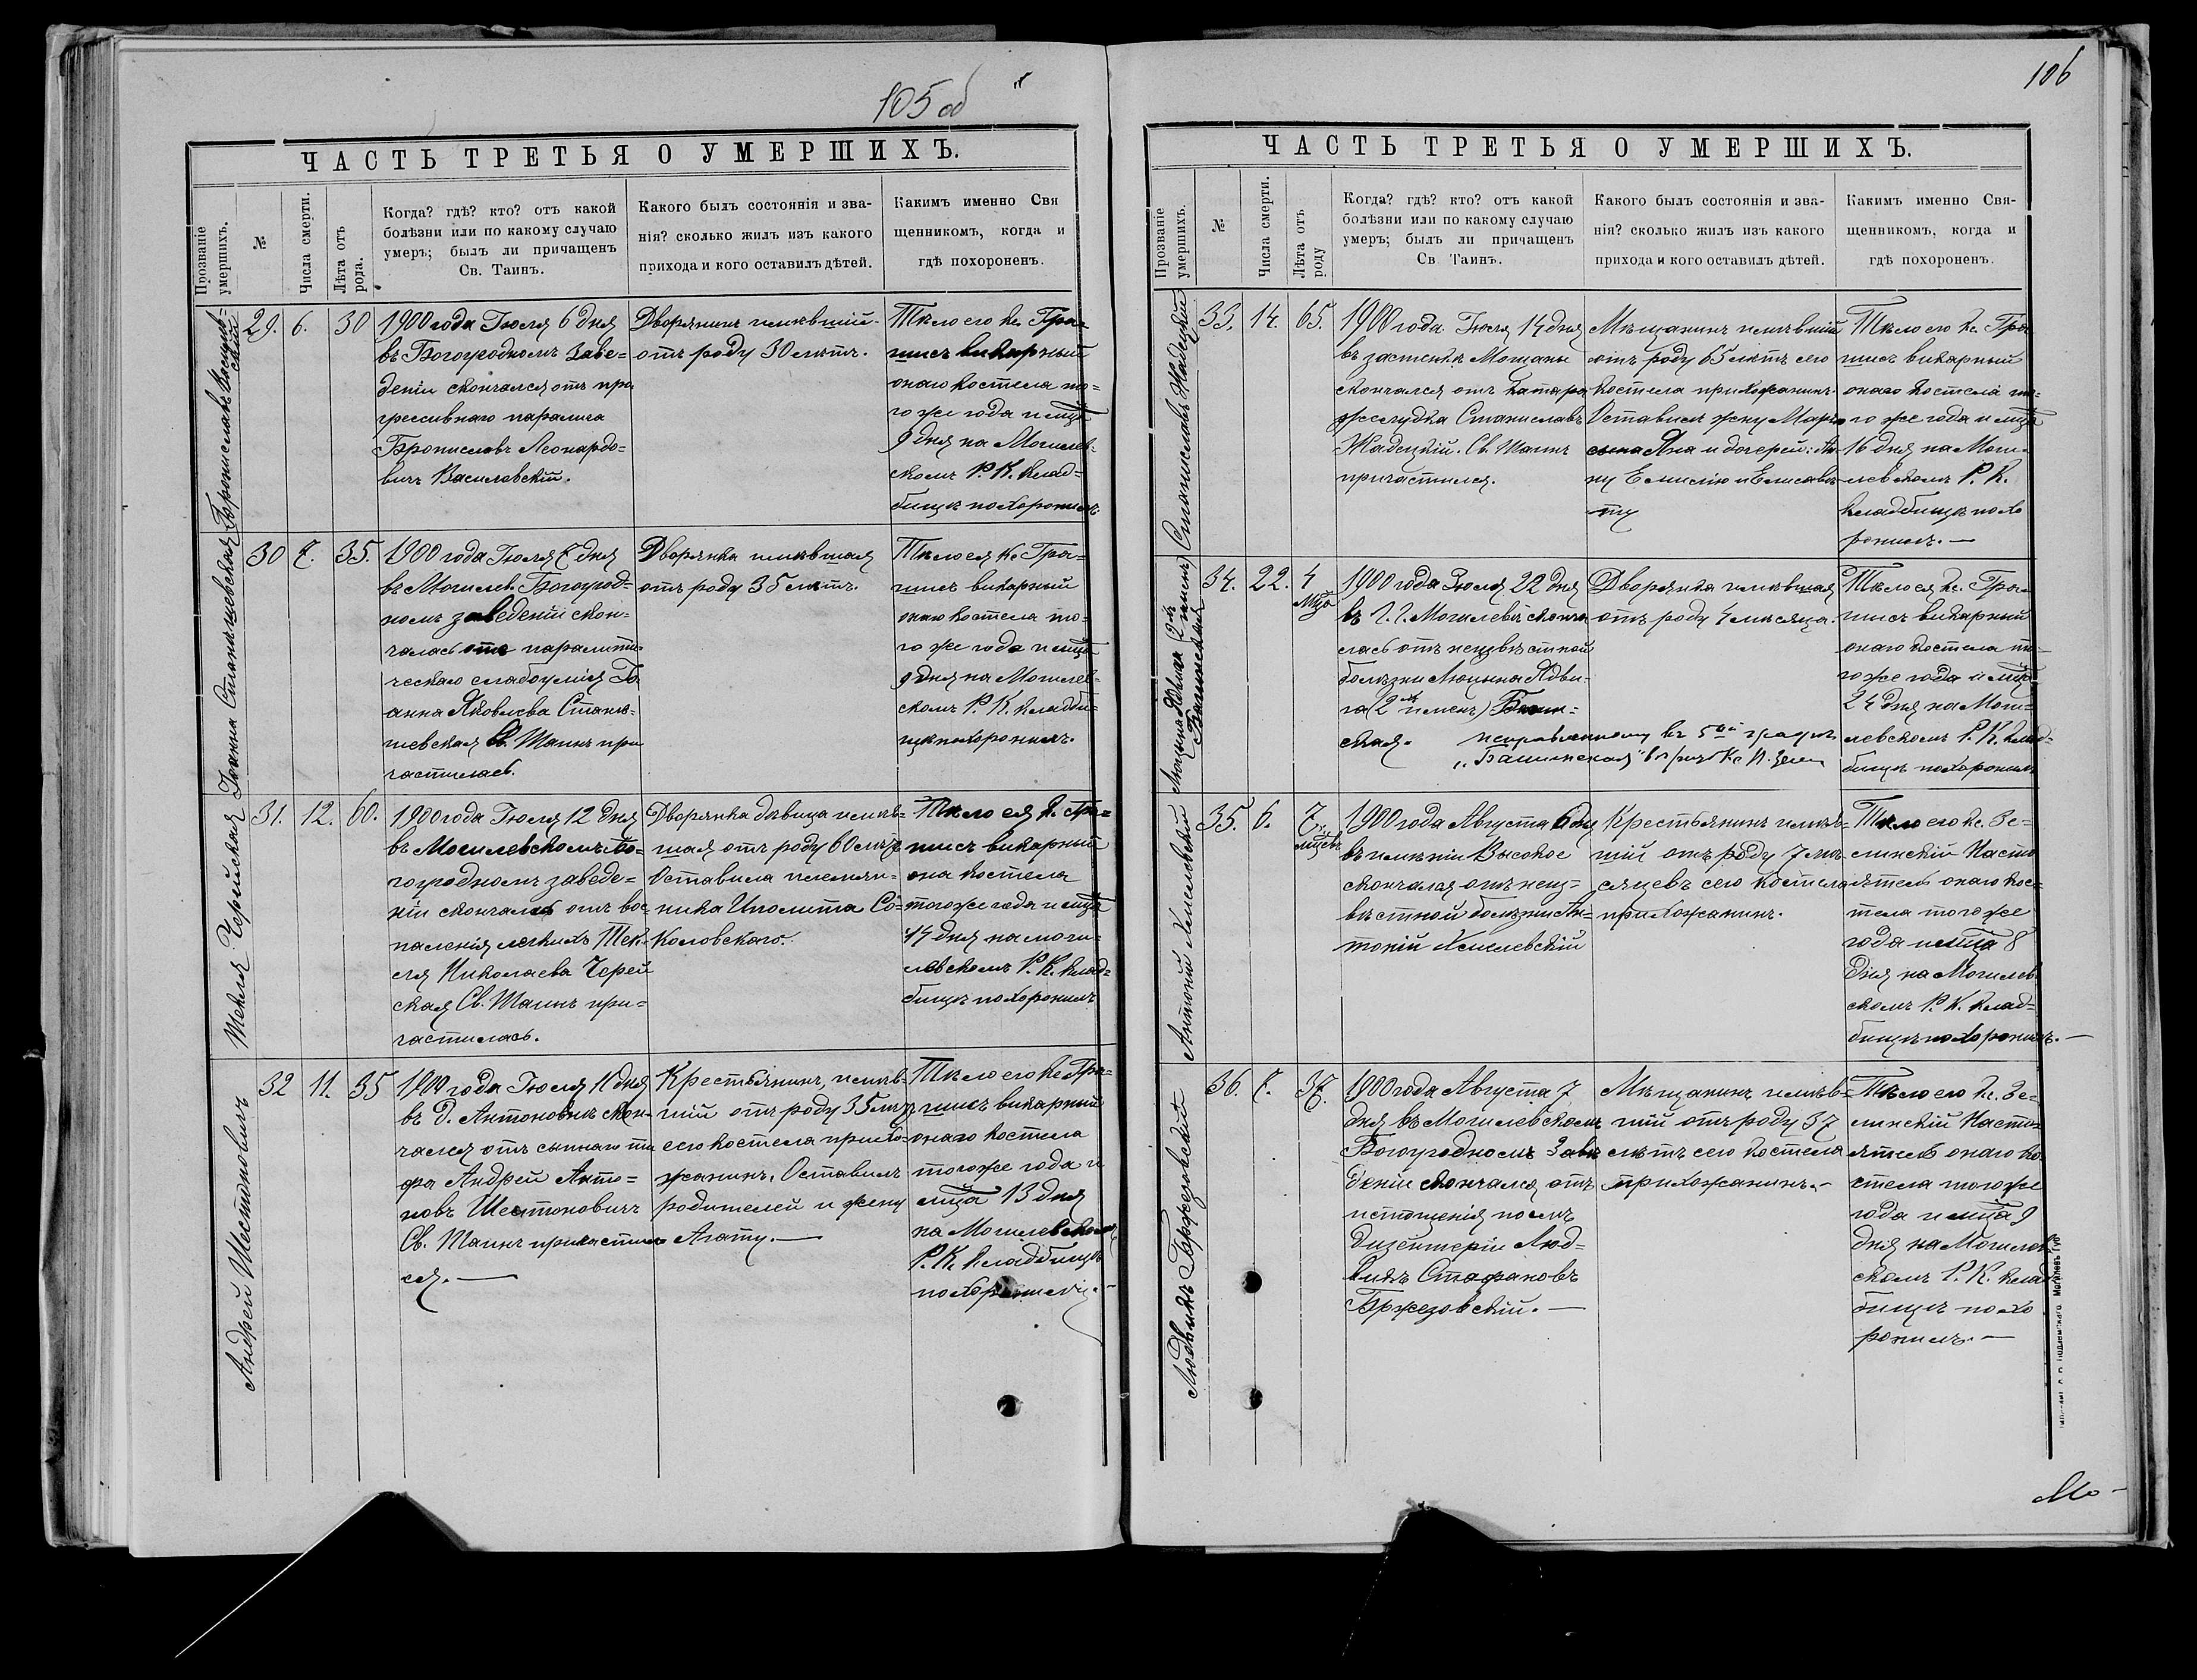 105 об
ЧАСТЬ ТРЕТЬЯ О УМЕРШИХЪ.
Прозваніе умершихъ.
№
Числа смерти.
Лѣта отъ рода.
Когда? гдѣ? кто? отъ какой
болѣзни или по какому случаю
умеръ; былъ ли причащенъ
Св. Таинъ.
Какого былъ состоянія и зва-
нія? сколько жилъ изъ какого
прихода и кого оставилъ дѣтей.
Какимъ именно Свя
щенникомъ, когда и
гдѣ похороненъ.
Брониславъ
29. 6. 30
1900 года Іюля 6 дня
въ Богоугодномъ Заве=
деніи скончался отъ про
грессивнаго паралича
Брониславъ Леонардо=
вичъ Василовскій.
Дворянинъ имѣвшій
отъ роду 30 лѣтъ.
Тѣло его Кс. Гра=
лисъ викарный
онаго костела то=
го же года и мца
9 дня на Могилев-
скомъ Р. К. клад=
бищѣ похоронилъ.
Іоанна Станишевская
30 7. 35.
1900 года Іюля 7 дня
въ Могилев. Богоугод=
номъ заведеніи скон=
чалась отъ паралити=
ческаго слабоумія Іо
анна Яковлева Стани=
шевская Св. Таинъ при
частилась.
Дворянка имѣвшая
отъ роду 35 лѣтъ.
Тѣло ея Кс Гра=
лисъ викарный
онаго костела то=
го же года и мца
9 дня на Могилев=
скомъ Р. К. кладби=
щѣ похоронилъ.
Текля Черейская
31. 12. 60.
1900 года Іюля 12 дня
въ Могилевскомъ Бо=
гоугодномъ заведе=
ніи скончалась отъ вос
паленія легкихъ Тек=
ля Николаева Черей
ская Св. Таинъ при=
частилась.
Дворянка дѣвица имѣв=
шая отъ роду 60 лѣтъ
Оставила племян=
ника Иполита Со=
коловскаго.
Тѣло ея К. Гра=
лисъ викарный
она костела
того же года и мца
14 дня на моги=
левскомъ Р. К. клад=
бищѣ похоронилъ
Андрей Шестоновичъ
32 11. 35
1900 года Іюля 11 дня
въ д. Антоновкѣ скон=
чался отъ сыпнаго ти
фа Андрей Анто=
новъ Шестоновичъ
Св. Таинъ причастил
ся.—
Крестьянинъ, имѣв=
шій отъ роду 35 лѣтъ
сего костела прихо=
жанинъ. Оставилъ
родителей и жену
Агату.—
Тѣло его Кс Гра=
лисъ викарный
онаго костела
того же года и
мца 13 дня
на Могилевском
Р. К. кладбищѣ
106
ЧАСТЬ ТРЕТЬЯ О УМЕРШИХЪ.
Прозваніе умершихъ.
№
Числа смерти.
Лѣта отъ роду
Когда? гдѣ? кто? отъ какой
болѣзни или по какому случаю
умеръ; былъ ли причащенъ
Св Таинъ.
Какого былъ состоянія и зва-
нія? сколько жилъ изъ какого
прихода и кого оставилъ дѣтей.
Какимъ именно Свя-
щенникомъ, когда и
гдѣ похороненъ.
Станиславъ Жадецкій
33. 14. 65.
1900 года Іюля 14 дня
въ застѣнкѣ Мощаны
скончался отъ катара
желудка Станиславъ
Жадецкій. Св. Таинъ
причастился.
Мѣщанинъ имѣвшій
отъ роду 65 лѣтъ сего
костела прихожанинъ.
Оставилъ жену Марію
сына Яна и дочерей: Ан
ну Емилію и Елисаве
ту
Тѣло его Кс. Гра
лисъ викарный
онаго костела то=
го же года и мца
16 дня на Моги=
левскомъ Р. К.
кладбищѣ похо
ронилъ.—
34. 22. 4 мца
1900 года Іюля 22 дня
въ Г. Г. Могилевѣ сконча
лась отъ неизвѣстной
болѣзни Люцына Ядви=
га (2хъ именъ)
ская.
Дворянка имѣвшая
отъ роду 4 мѣсяца.
исправленному въ 5ой графѣ
Тѣло ея Кс. Гра=
лисъ викарный
онаго костела то=
го же года и мца
24 дня на Моги=
левскомъ Р. К. клад=
бищѣ похоронилъ
35. 6. 7. мцевъ
1900 года Августа 6 дня
въ имѣніи Высокое
скончался отъ неиз=
вѣстной болѣзни Ан=
тоній Хмелевскій
Крестьянинъ имѣв=
шій отъ роду 7 мѣ=
сяцевъ сего костела
прихожанинъ.
Тѣло его Кс. Зе=
линскій Насто
ятель онаго кос=
тела того же
года и мца 8
дня на Могилев
скомъ Р. К. клад=
бищѣ похоронилъ.—
Антоній Хмелевскій
36. 7. 37.
1900 года Августа 7
дня въ Могилевскомъ
Богоугодномъ Заве
деніи скончался отъ
истощенія послѣ
дизентеріи Люд=
викъ Стафановъ
Бржезовскій.—
Мѣщанинъ имѣв=
шій отъ роду 37
лѣтъ сего костела
прихожанинъ.—
Тѣло его Кс. Зе=
линскій Насто=
ятель онаго ко
стела того же
года и мца 9
дня на Могилев
скомъ Р. К. клад
бищѣ похо
ронилъ.—
Людвикъ Бржезовскій